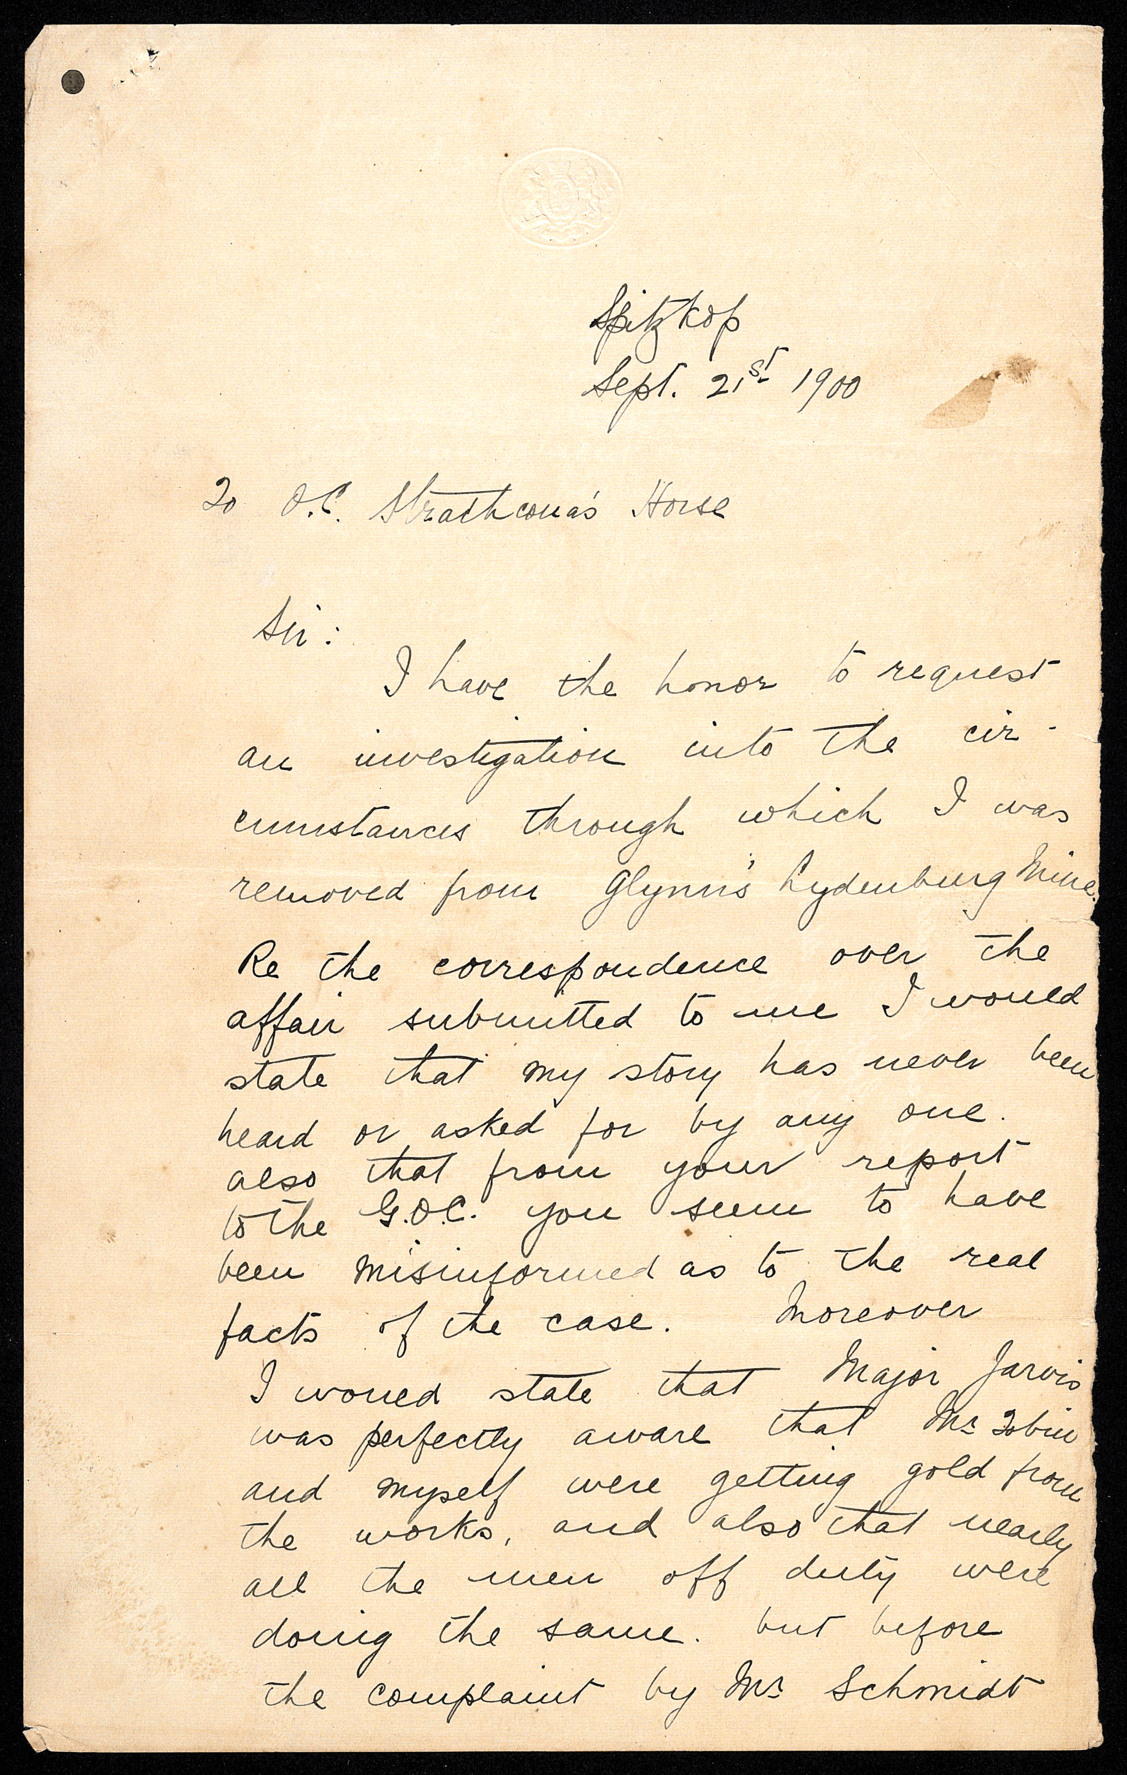 Spitzkop
Sept. 21st 1900
To O.C. Strathcona's Horse
Sir:
I have the honor to request
an investigation into the cir-
cumstances through which I was
removed from Glynn's Lydenburg Mine.
Re the correspondence over the
affair submitted to me I would
state that my story has never been
heard or asked for by any one.
also that from your report
to the G.O.C. you seem to have
been misinformed as to the real
facts of the case. Moreover
I would state that Major Jarvis
was perfectly aware that Mr Tobin
and myself were getting gold from
the works, and also that nearly
all the men off duty were
doing the same. but before
the complaint by Mr Schmidt